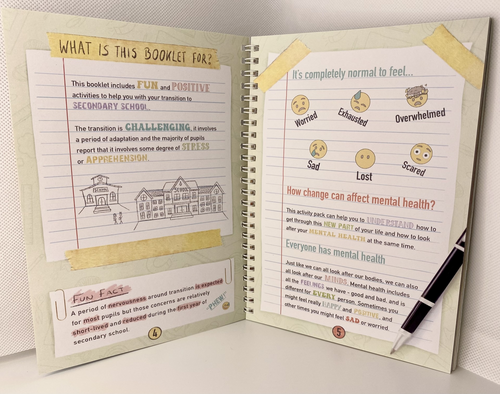 WHAT IS THIS BOOKLET FOR?
This booklet includes FUN and POSITIVE
activities to help you with your transition to
SECONDARY SCHOOL.
The transition is CHALLENGING, it involves
a period of adaptation and the majority of pupils
report that it involves some degree of STRESS
or APPREHENSION.
SCHOOL
FUN FACT
A period of nervousness around transition is expected
for most pupils but those concerns are relatively
short-lived and reduced during the first year of
secondary school.
PHEW!
4
It's completely normal to feel...
Worried
Exhausted
Overwhelmed
Sad
Lost
Scared
How change can affect mental health?
This activity pack can help you to UNDERSTAND how to
get through this NEW PART of your life and how to look
after your MENTAL HEALTH at the same time.
Everyone has mental health
Just like we can all look after our bodies, we can also
all look after our MINDS. Mental health includes
all the FEELINGS we have - good and bad, and is
different for EVERY person. Sometimes you
might feel really HAPPY and POSITIVE, and
other times you might feel SAD or worried.
5